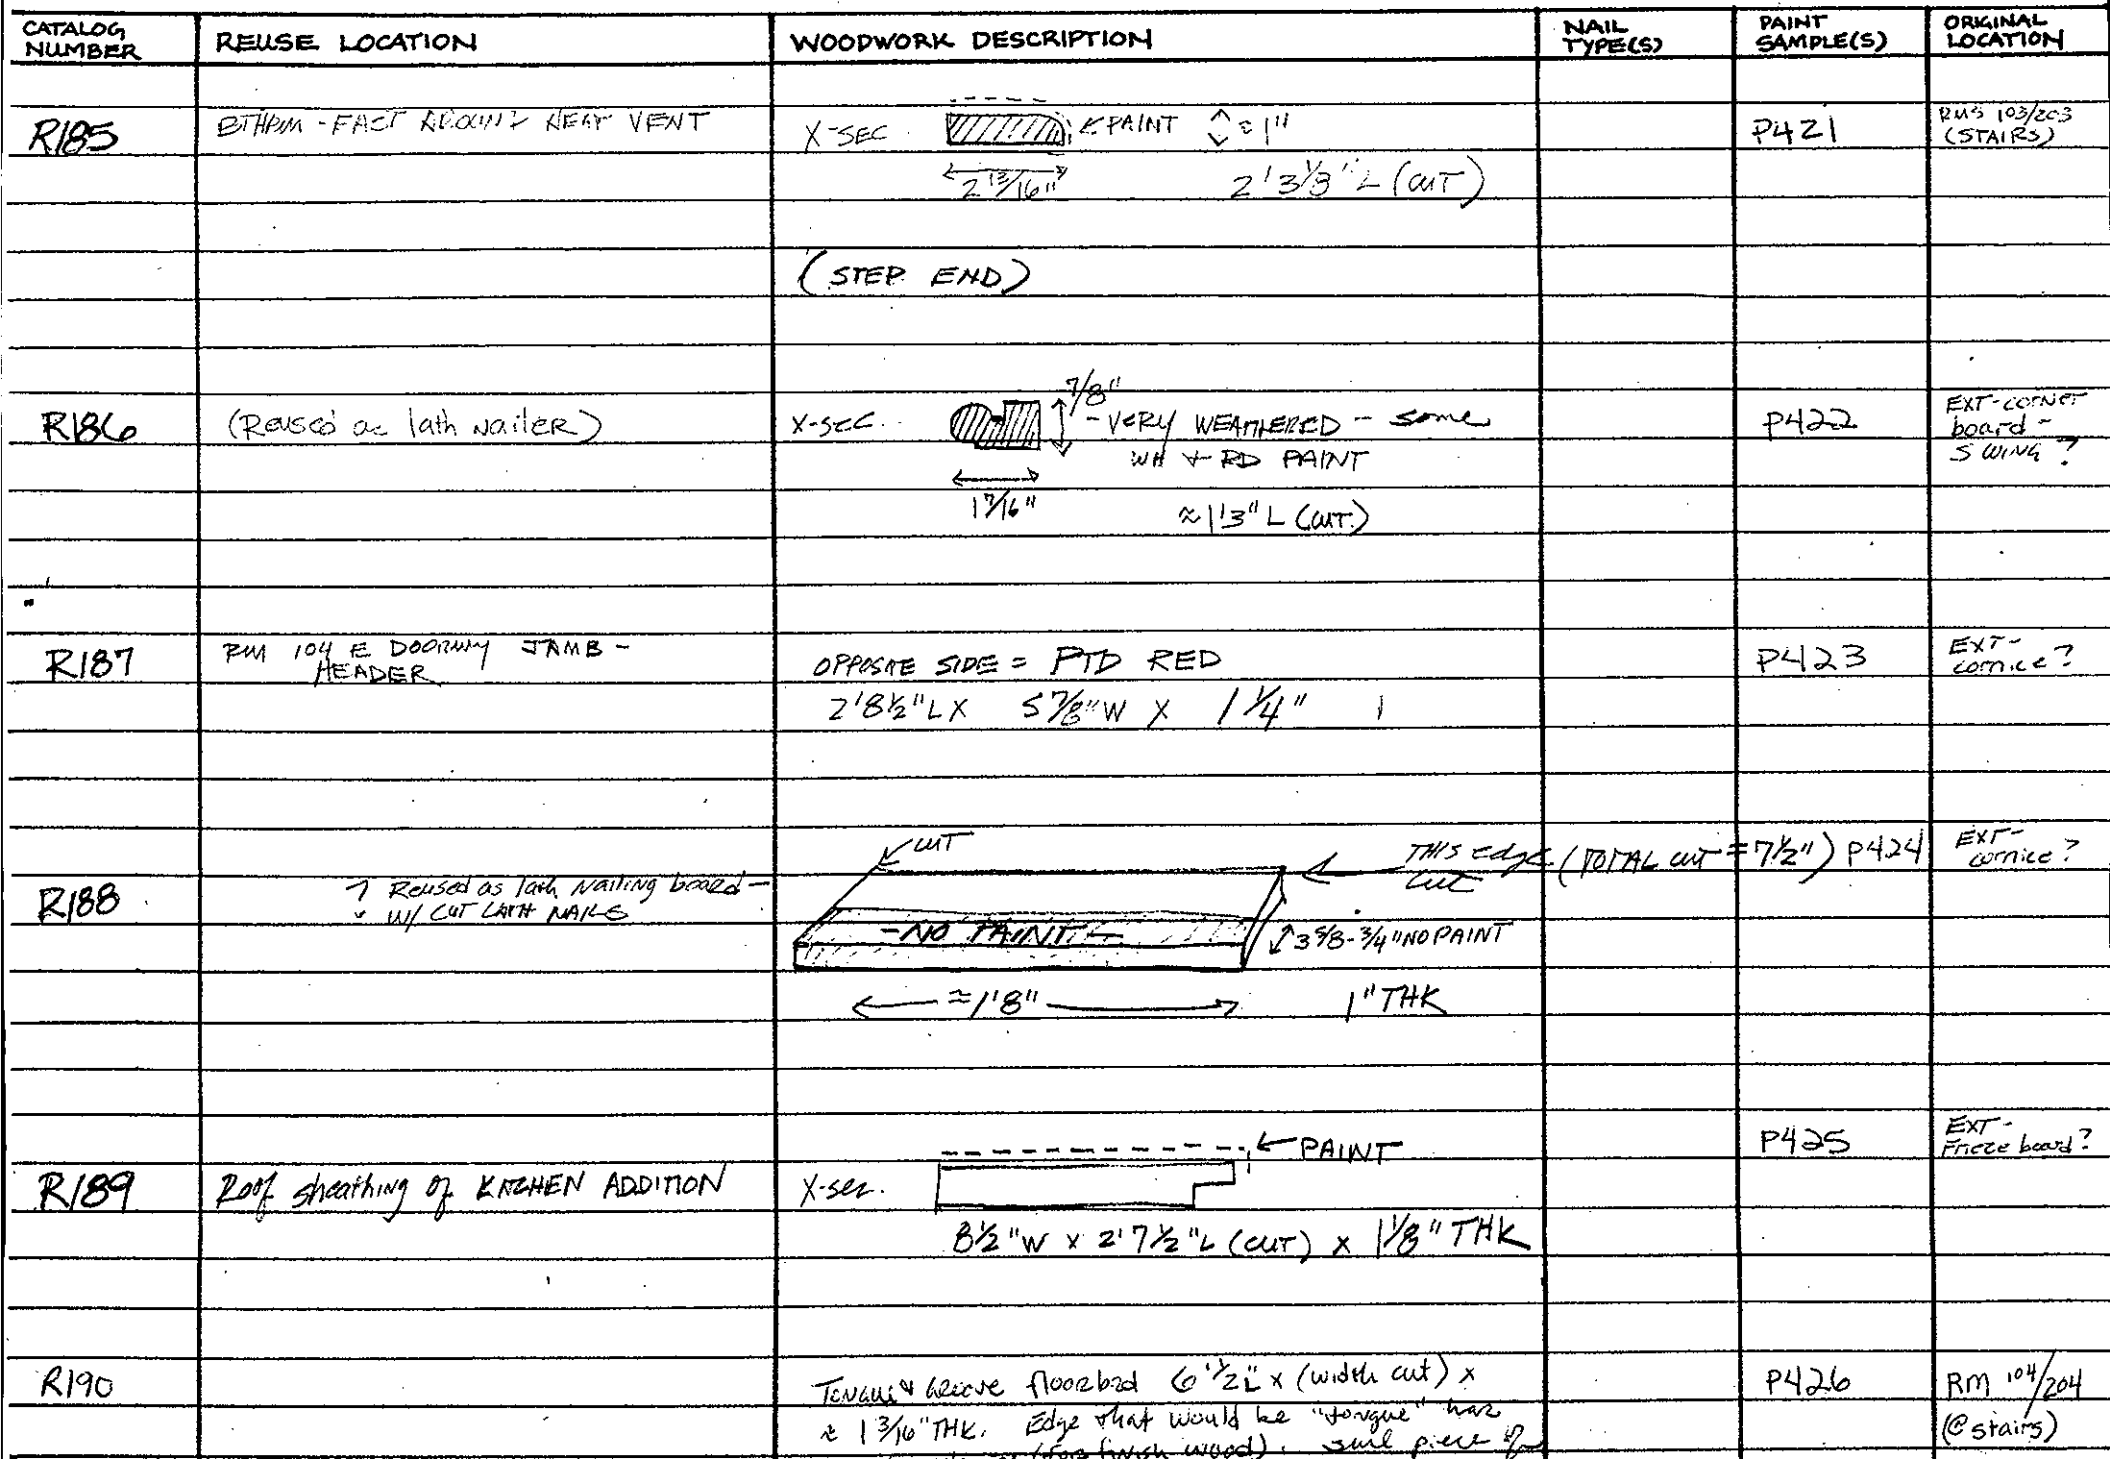 CATALOG NUMBER
REUSE LOCATION
WOODWORK DESCRIPTION
NAIL TYPE(S)
PAINT SAMPLE(S)
ORIGINAL LOCATION
R185
BTHRM - FACT AROUND NEAR VENT
X-SEC
PAINT
≈ 1"
2 13/16"
2'3 1/8" L (CUT)
(STEP END)
P421
RMS 103/203
(STAIRS)
R186
(Reused as lath nailer)
X-SEC.
7/8"
- VERY WEATHERED - some
WH + RD PAINT
1 7/16"
≈ 1'3" L (CUT.)
P422
EXT-corner
board -
S WING ?
R187
RM 104 E DOORWAY JAMB -
HEADER
OPPOSITE SIDE = PTD RED
2'8 1/2" L X 5 7/8" W X 1 1/4"
P423
EXT-
cornice?
R188
? Reused as lath nailing board -
W/ CUT LATH NAILS
CUT
THIS edge (TOTAL cut = 7 1/2")
cut
- NO PAINT -
3 5/8 - 3/4" NO PAINT
≈ 1'8"
1" THK
P424
EXT-
cornice?
R189
Roof sheathing of KITCHEN ADDITION
X-sec.
PAINT
8 1/2" W x 2'7 1/2" L (CUT) x 1 1/8" THK
P425
EXT-
Frieze board?
R190
Tongue & Groove floorbrd 6' 1/2" L x (width cut) x
≈ 1 3/16" THK. Edge that would be "tongue" has
(for finish wood). piece
P426
RM 104/204
(@ stairs)